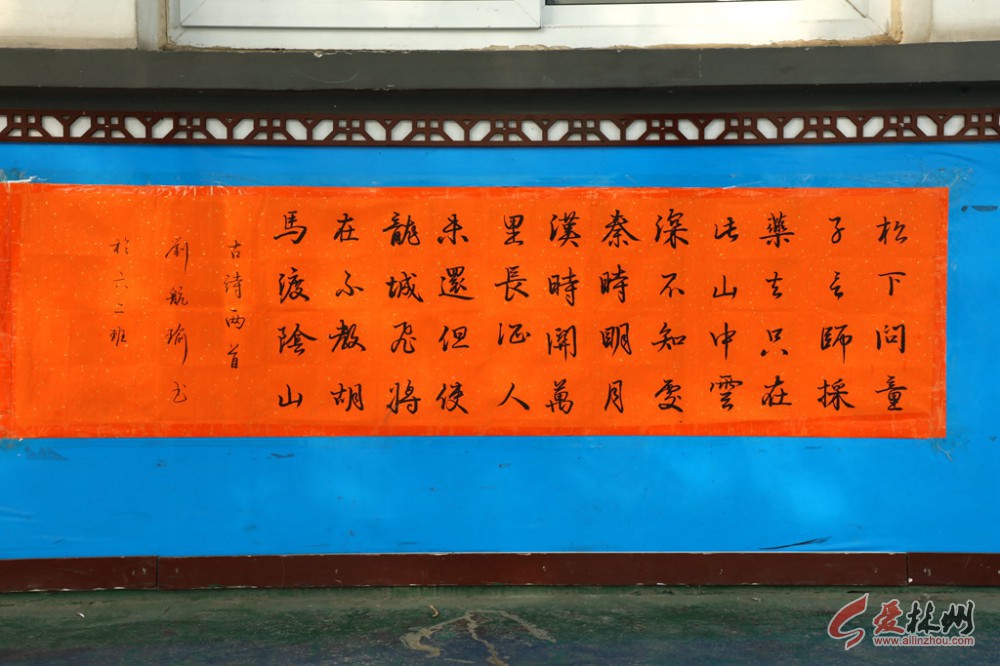 松下問童
子言師採
藥去只在
此山中雲
深不知處
秦時明月
漢時關萬
里長征人
未還但使
龍城飛將
在不教胡
馬渡陰山
古詩两首
劉航瑜书
於六二班
爱林州
www.ailinzhou.com